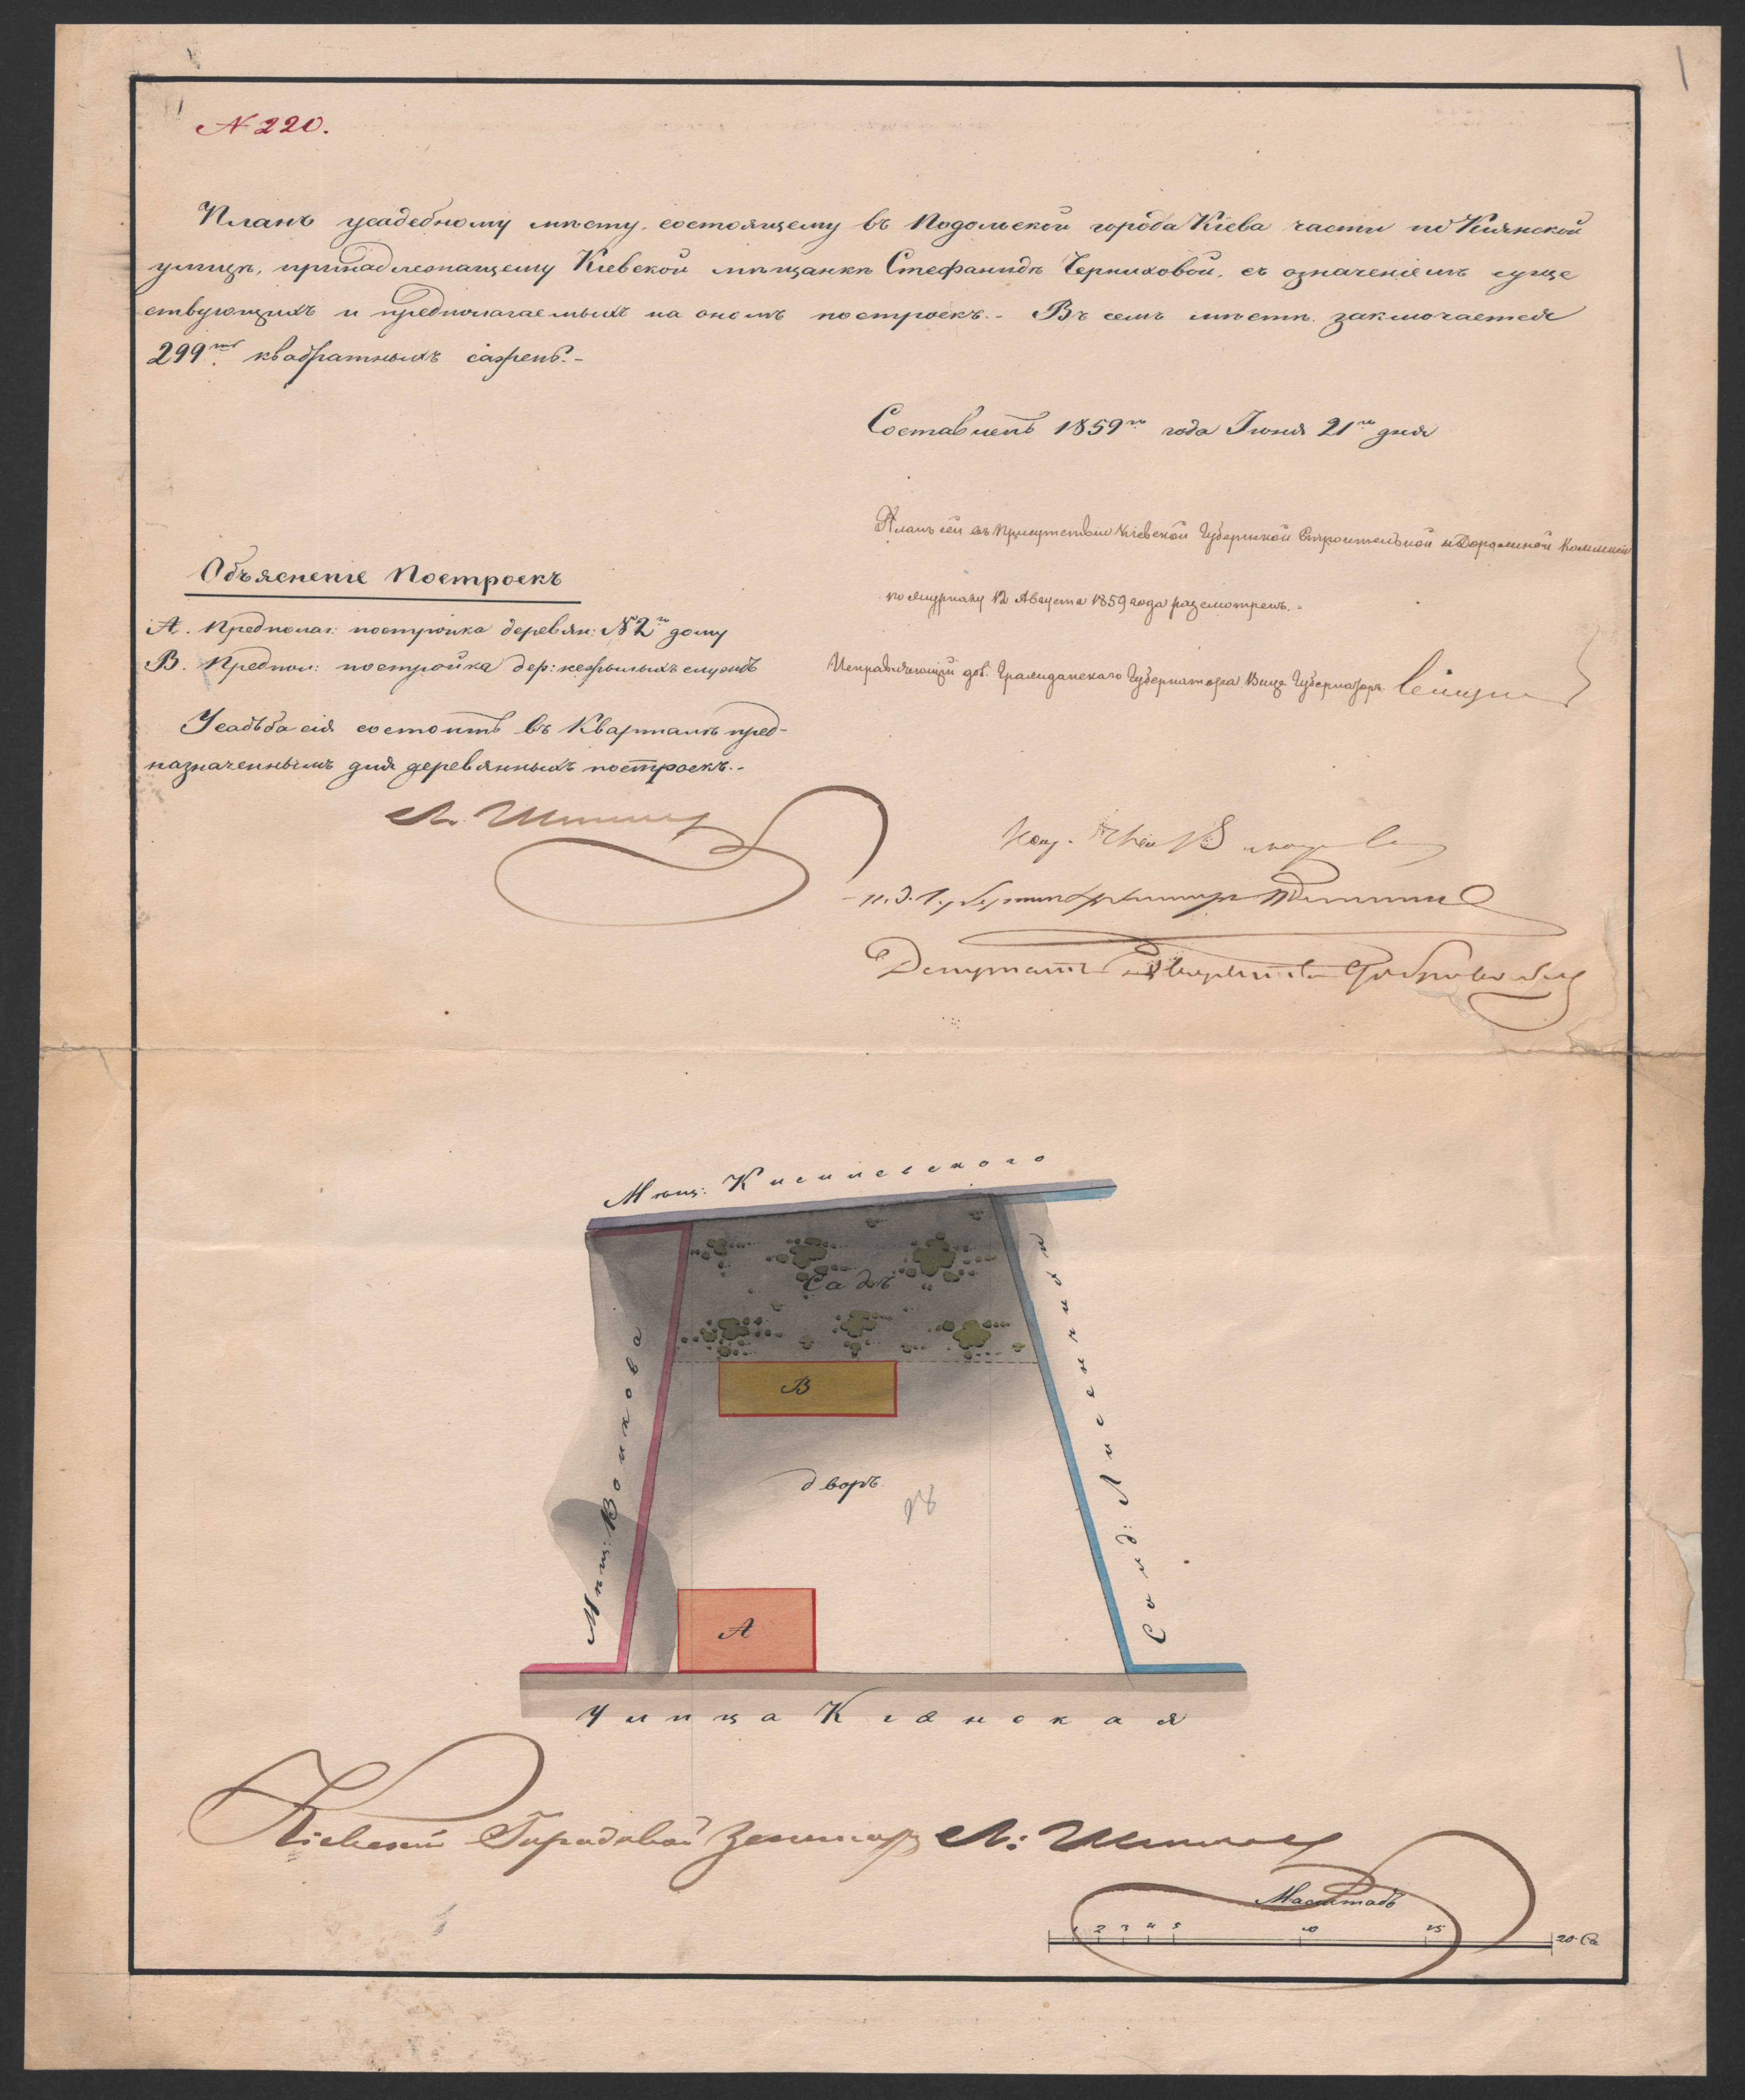 № 220.
Планъ усадебному мѣсту, состоящему въ Подольской города Кіева части по Кіянской
улицѣ, принадлежащему Кіевской мѣщанкѣ Стефанидѣ Черниховой, съ означеніемъ суще
ствующихъ и предполагаемыхъ на ономъ построекъ. - Въ семъ мѣстѣ заключается
299 ть квадратныхъ сажень. -
Составленъ 1859 го года Іюня 21 го дня
Планъ сей въ Присутствіи Кіевской Губернской Строительной и Дорожной Коммисіи
по журналу 12 Августа 1859 года разсмотренъ. -
Исправляющій дол. Гражданскаго Губернатора Вице Губернаторъ
Объясненіе Построекъ
А. Предполаг: постройка деревян: № 2 го дому
В. Предпол: постройка дер: нежилыхъ службъ
Усадьба сія состоитъ въ Кварталѣ пред-
назначенномъ для деревянныхъ построекъ. -
Л.
и. д. Губернск. Архитектора
Депутатъ Дворянства
Мѣщ: Кисилевскаго
Садъ
В
дворъ
А
Мѣщ: Волкова
Солд: Лисенчихи
Улица Кіянская
Кіевскій Городовой Землемѣръ Л:
Масштабъ
1 2 3 4 5 10 15 20 Са